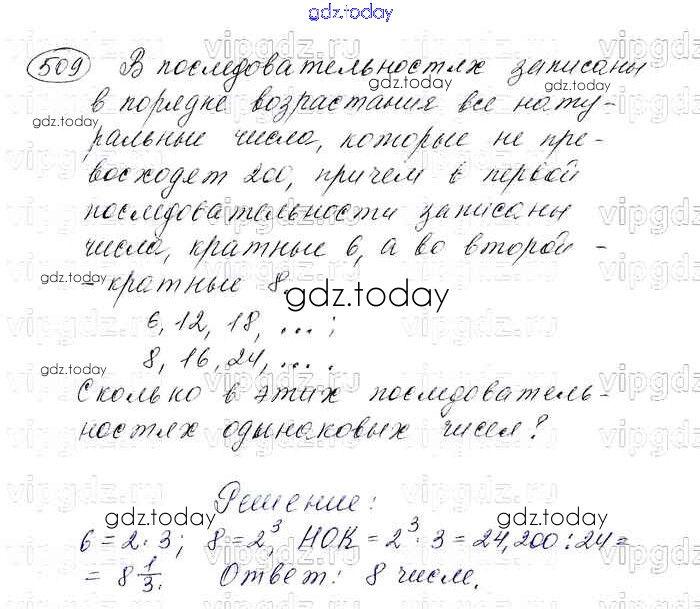 gdz.today
509 В последовательностях записаны
в порядке возрастания все нату-
ральные числа, которые не пре-
восходят 200, причем в первой
последовательности записаны
числа, кратные 6, а во второй -
- кратные 8.
6, 12, 18, ... ;
8, 16, 24, ... .
Сколько в этих последователь-
ностях одинаковых чисел?
Решение:
6 = 2 · 3; 8 = 2³, НОК = 2³ · 3 = 24, 200 : 24 =
= 8 1/3. Ответ: 8 чисел.